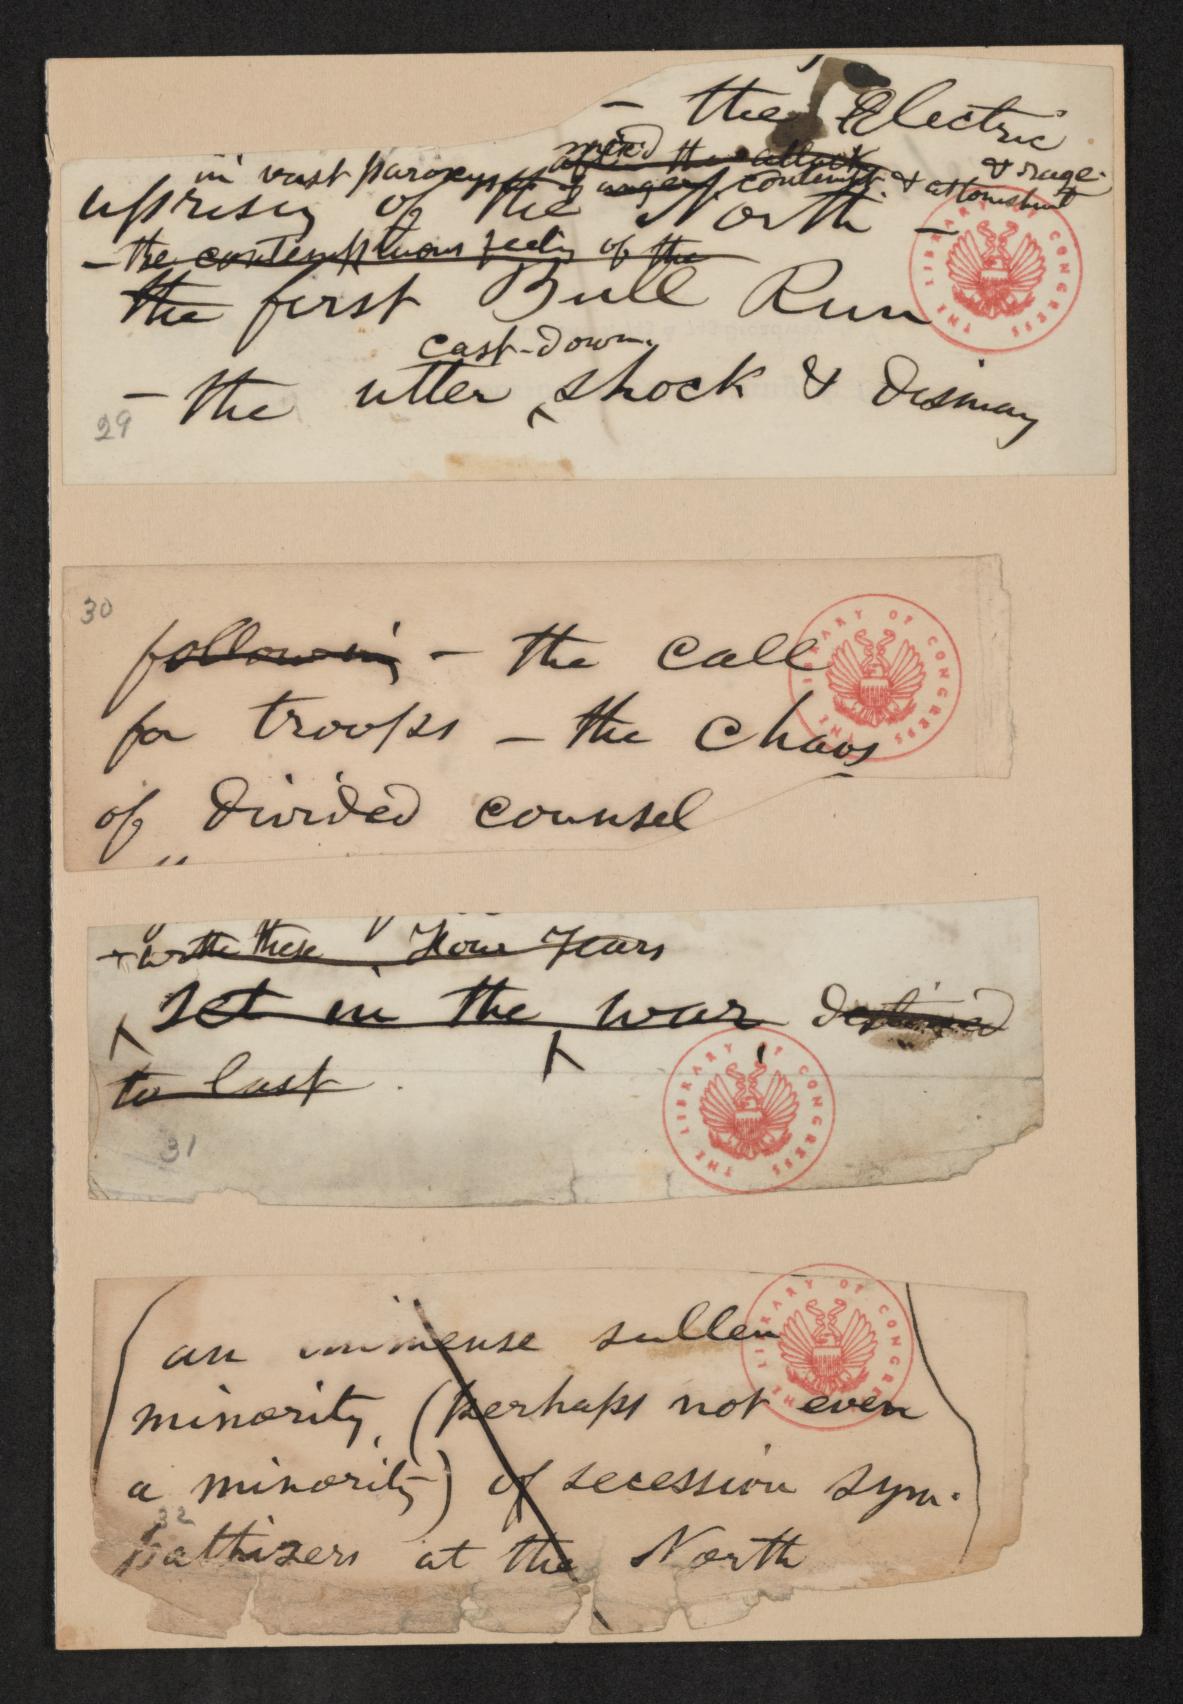 — the Electric
mixed
after the attack
in vast paroxysm of anger, contempt & astonishment & rage.
uprising of the North —
— the contemptuous feeling of the
the first Bull Run
cast-down,
— the utter ^ shock & dismay
29
THE LIBRARY OF CONGRESS
30
following — the call
for troops — the chaos
of divided counsel
THE LIBRARY OF CONGRESS
write these Four Years
set in the war destined
to last .
31
THE LIBRARY OF CONGRESS
( an immense sullen
minority, (perhaps not even
a minority) of secession sym-
32
pathizers at the North
THE LIBRARY OF CONGRESS